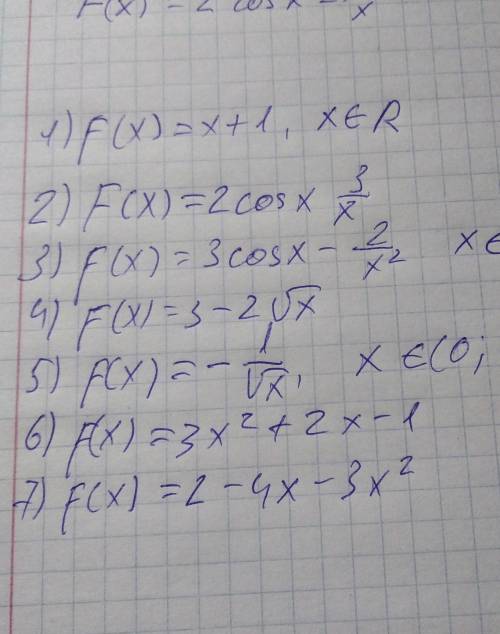 F(x) = 2 cosx -
x
1) F(x) = x + 1, x ∈ R
2) F(x) = 2 cosx 3/x
3) F(x) = 3 cosx - 2/x², x ∈
4) F(x) = 3 - 2√x
5) F(x) = - 1/√x, x ∈ (0;
6) F(x) = 3x² + 2x - 1
7) F(x) = 2 - 4x - 3x²